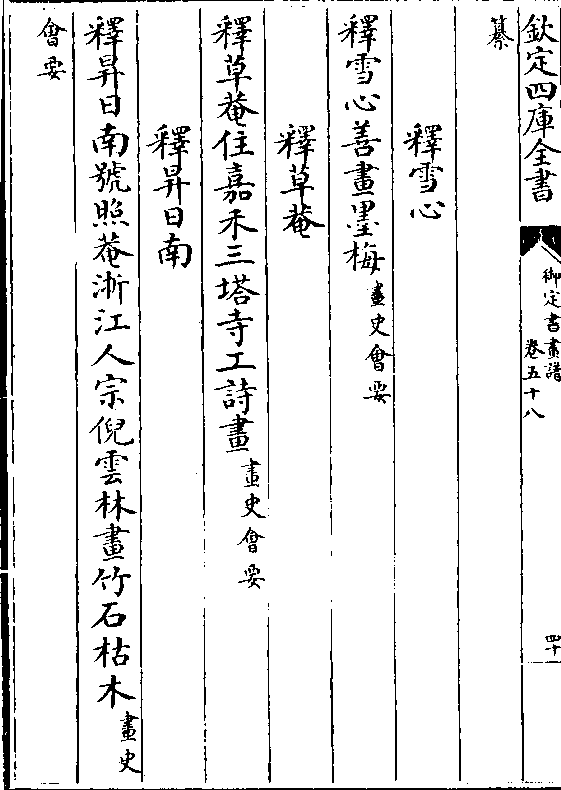 欽定四庫全書
御定書畫譜
卷五十八
四十
纂
釋雪心
釋雪心善畫墨梅畫史會要
釋草菴
釋草菴住嘉禾三塔寺工詩畫畫史會要
釋昇日南
釋昇日南號照菴浙江人宗倪雲林畫竹石枯木畫史
會要